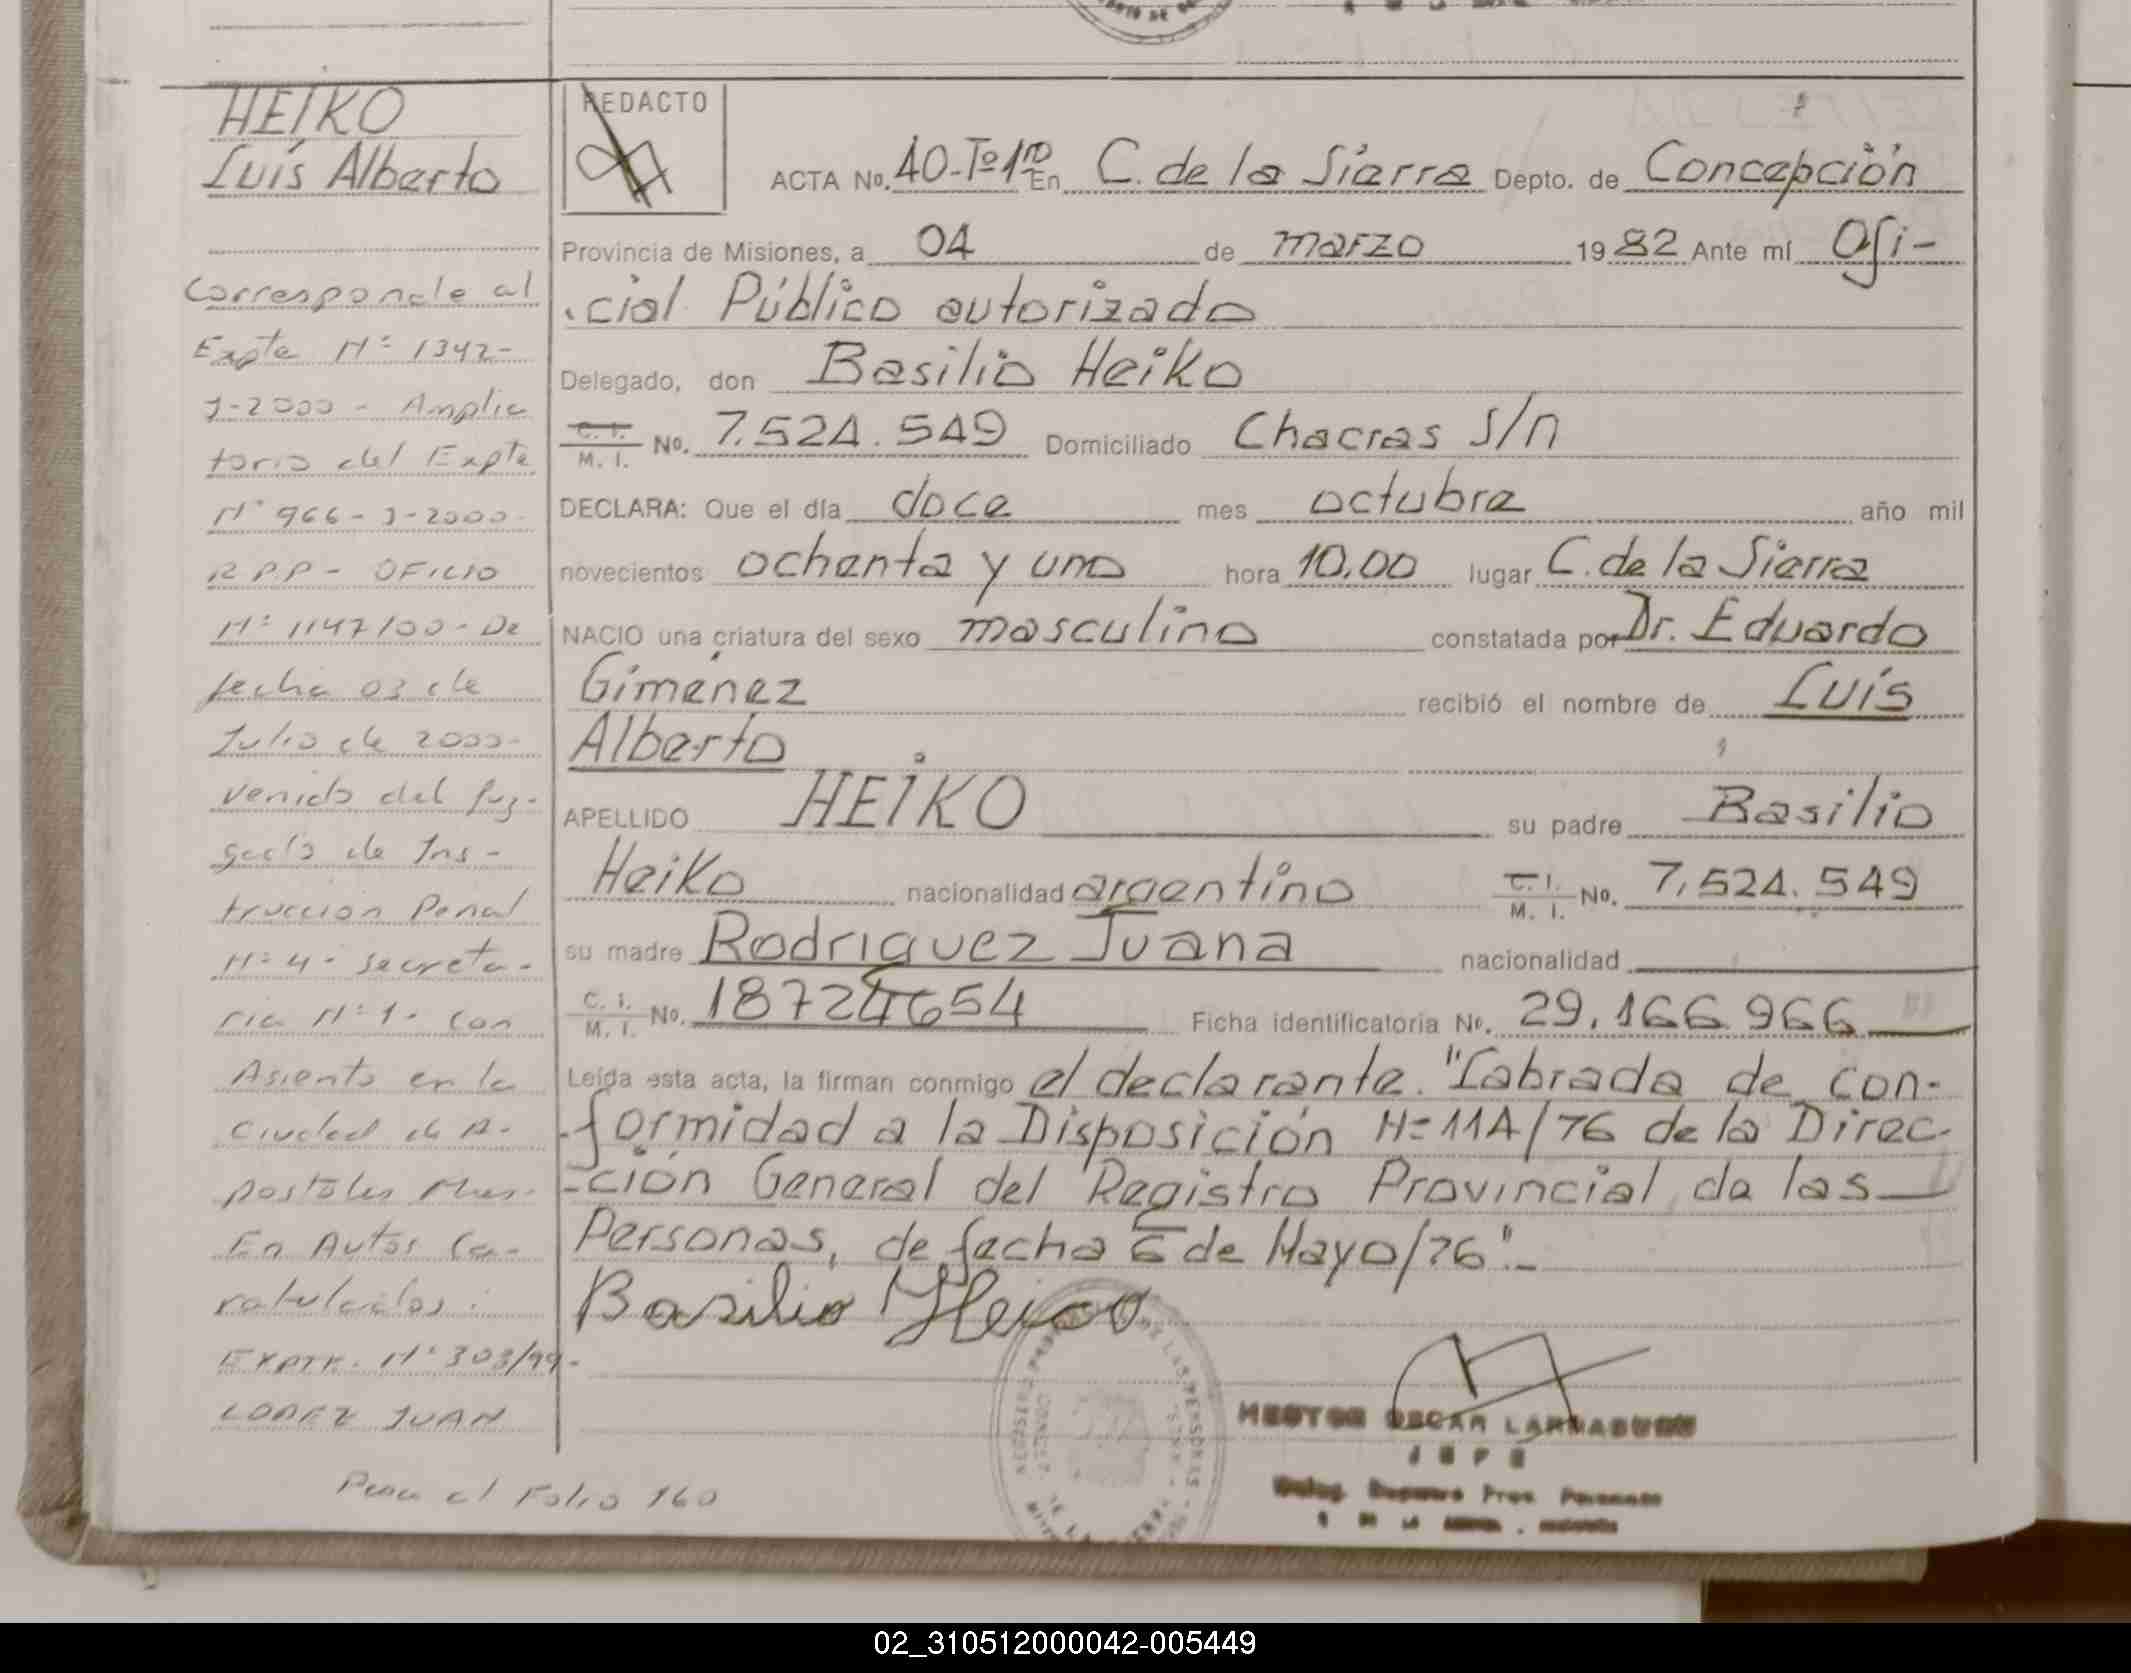 HEIKO
Luís Alberto
Corresponde al
Expte Nº 1342-
J-2000- Amplia
torio del Expte
Nº 966-J-2000-
R.P.P- OFICIO
Nº 1147/00- De
fecha 03 de
Julio de 2000-
venido del Juz-
gado de Ins-
trucción Penal
Nº 4- Secreta-
ria Nº 1- Con
Asiento en la
Ciudad de A-
postoles Mnes-
En Autos Ca-
ratulados:
EXPTE. Nº 303/99-
LOPEZ JUAN
Pasa al Folio 160
REDACTO
ACTA No. 40-Tº1ro En C. de la Sierra Depto. de Concepción
Provincia de Misiones, a 04 de marzo 1982 Ante mí Ofi-
cial Público autorizado
Delegado, don Basilio Heiko
C. I.
M. I. No. 7.524.549 Domiciliado Chacras s/n
DECLARA: Que el día doce mes octubre año mil
novecientos ochenta y uno hora 10,00 lugar C. de la Sierra
NACIO una criatura del sexo masculino constatada por Dr. Eduardo
Giménez recibió el nombre de Luís
Alberto
APELLIDO HEIKO su padre Basilio
Heiko nacionalidad argentino C. I. M. I. No. 7.524.549
su madre Rodriguez Juana nacionalidad
C. I. M. I. No. 18724654 Ficha identificatoria No. 29.166.966
Leída esta acta, la firman conmigo el declarante. "Labrada de con-
formidad a la Disposición Nº 114/76 de la Direc-
-ción General del Registro Provincial de las
Personas, de fecha 6 de Mayo/76".-
Basilio Heico
HECTOR OSCAR LARRABURU
JEFE
02_310512000042-005449